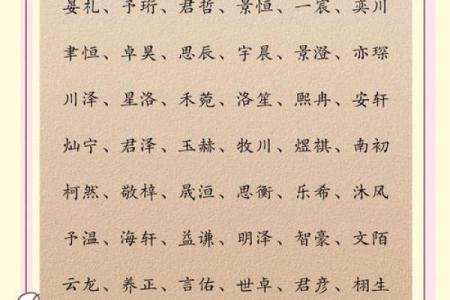 晏礼、予珩、君哲、景恒、一宸、奕川
聿恒、卓昊、思辰、宇晨、景澄、亦琛
川泽、星洛、禾菀、洛笙、熙冉、安轩
灿宁、君泽、玉赫、牧川、煜祺、南初
柯然、敬梓、晟洹、思衡、乐希、沐风
予温、海轩、益谦、明泽、智豪、文陌
云龙、养正、言佑、世卓、君彦、栩生